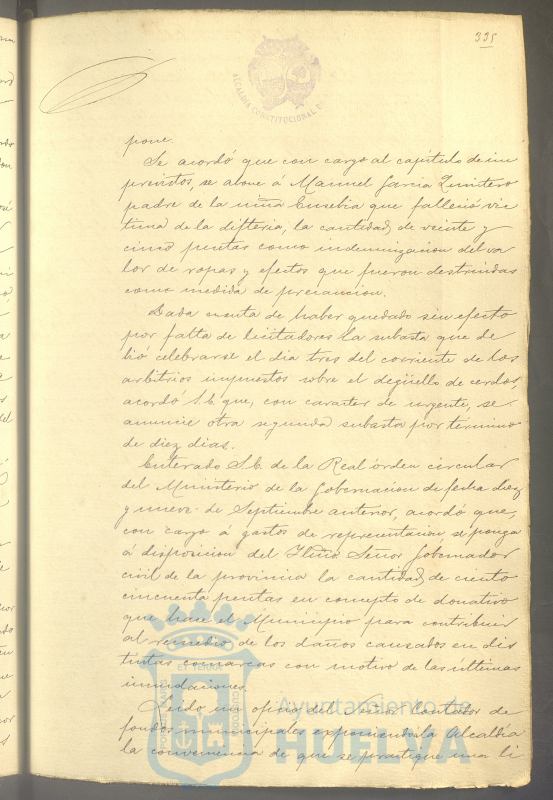 335
ALCALDIA CONSTITUCIONAL
pone.
Se acordó que con cargo al capítulo de im
previstos, se abone á Manuel Garcia Quintero
padre de la niña Eusebia que falleció vic
tima de la difteria, la cantidad de veinte y
cinco pesetas como indemnizacion del va
lor de ropas y efectos que fueron destruidas
como medida de precaucion.
Dada cuenta de haber quedado sin efecto
por falta de licitadores la subasta que de
bió celebrarse el dia tres del corriente de los
arbitrios impuestos sobre el degüello de cerdos,
acordó S.E. que, con caracter de urgente, se
anuncie otra segunda subasta por término
de diez dias.
Enterado S.E. de la Real orden circular
del Ministerio de la Gobernacion de fecha diez
y nueve de Septiembre anterior, acordó que,
con cargo á gastos de representacion, se ponga
á disposicion del Iltmo Señor Gobernador
civil de la provincia la cantidad de ciento
cincuenta pesetas en concepto de donativo
que hace el Municipio para contribuir
al remedio de los daños causados en dis
tintas comarcas con motivo de las ultimas
inundaciones.
Leido un oficio del Señor Contador de
fondos municipales exponiendo á la Alcaldía
la conveniencia de que se practique una li
Ayuntamiento de
HUELVA